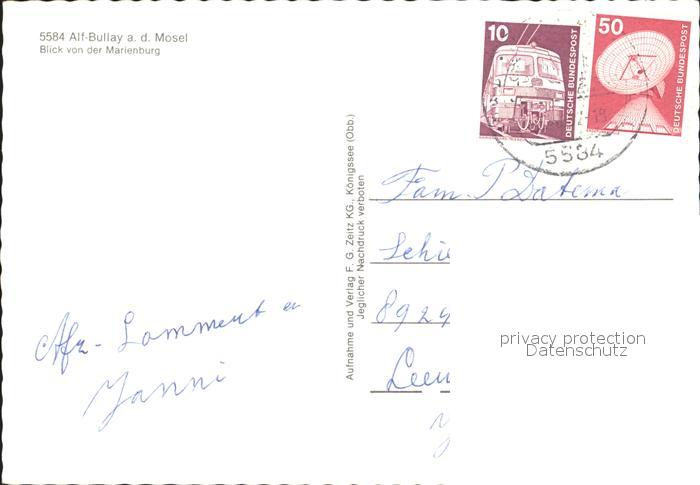 5584 Alf-Bullay a. d. Mosel
Blick von der Marienburg
10
DEUTSCHE BUNDESPOST
50
DEUTSCHE BUNDESPOST
5584
Fam. P Datema
Schi
8924
Leeu
privacy protection
Datenschutz
Aufnahme und Verlag F. G. Zeitz KG., Königssee (Obb.)
Jeglicher Nachdruck verboten
Lammert en
Janni